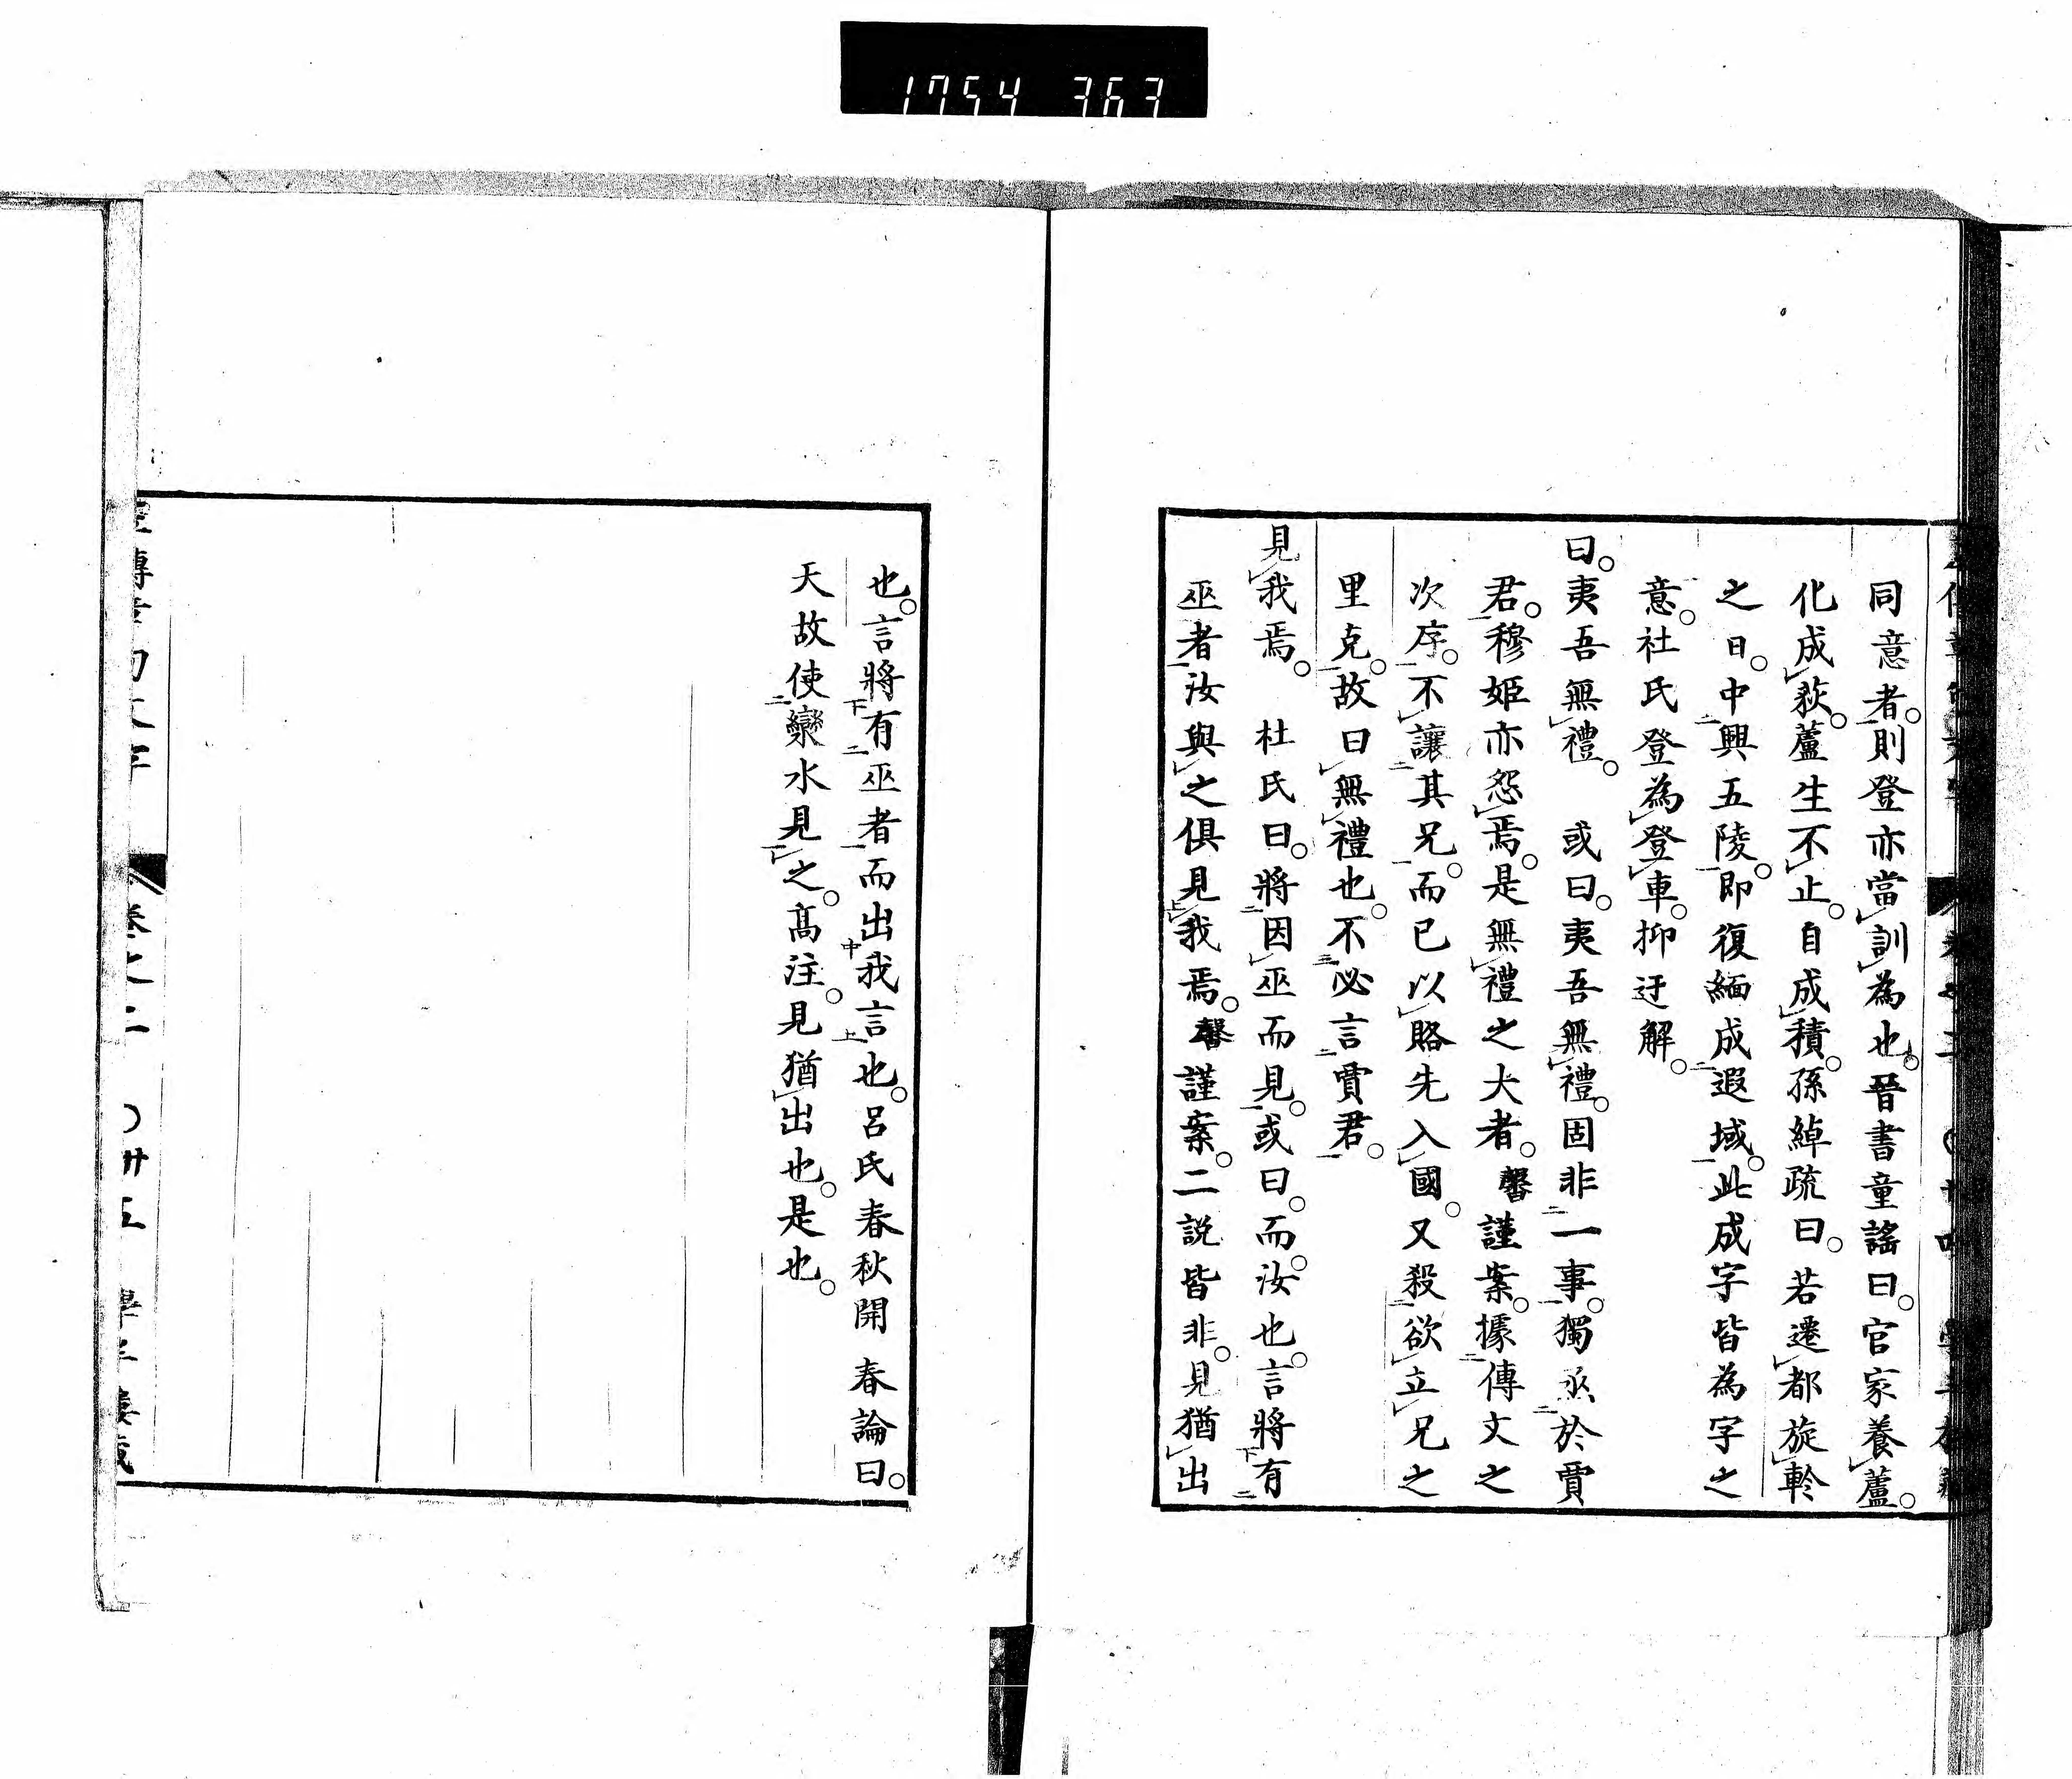 1754 363
同意者。則登亦當訓為也。晉書童謠曰。官家養蘆。
化成荻。蘆生不止。自成積。孫綽疏曰。若遷都旋軫
之日。中興五陵。即復緬成遐域。此成字皆為字之
意。社氏登為登車。抑迂解。
曰。夷吾無禮。 或曰。夷吾無禮。固非一事。獨烝於賈
君。穆姬亦怨焉。是無禮之大者。馨謹案。據傳文之
次序。不讓其兄。而已以賂先入國。又殺欲立兄之
里克。故曰無禮也。不必言賈君。
見我焉。 杜氏曰。將因巫而見。或曰。而。汝也。言將有
巫者汝與之俱見我焉。馨謹案。二説皆非。見猶出
也。言將有巫者而出我言也。呂氏春秋開春論曰。
天故使欒水見之。高注。見猶出也。是也。
卷之二 〇卅五